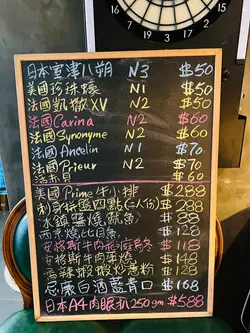 日本室津八朔 N3 $50
美國珍珠蠔 N1 $50
法國凱撒XV N2 $50
法國Carina N2 $60
法國Synonyme N2 $60
法國Ancelin N1 $70
法國Prieur N2 $70
活赤貝 $60
美國Prime牛小排 $288
四點(二人份) $288
燒魷魚 $88
西京燒比目魚 $128
安格斯牛肉 $118
安格斯牛肉 $148
粉 $128
忌廉白酒藍青口 $168
日本A4肉眼扒250gm $588